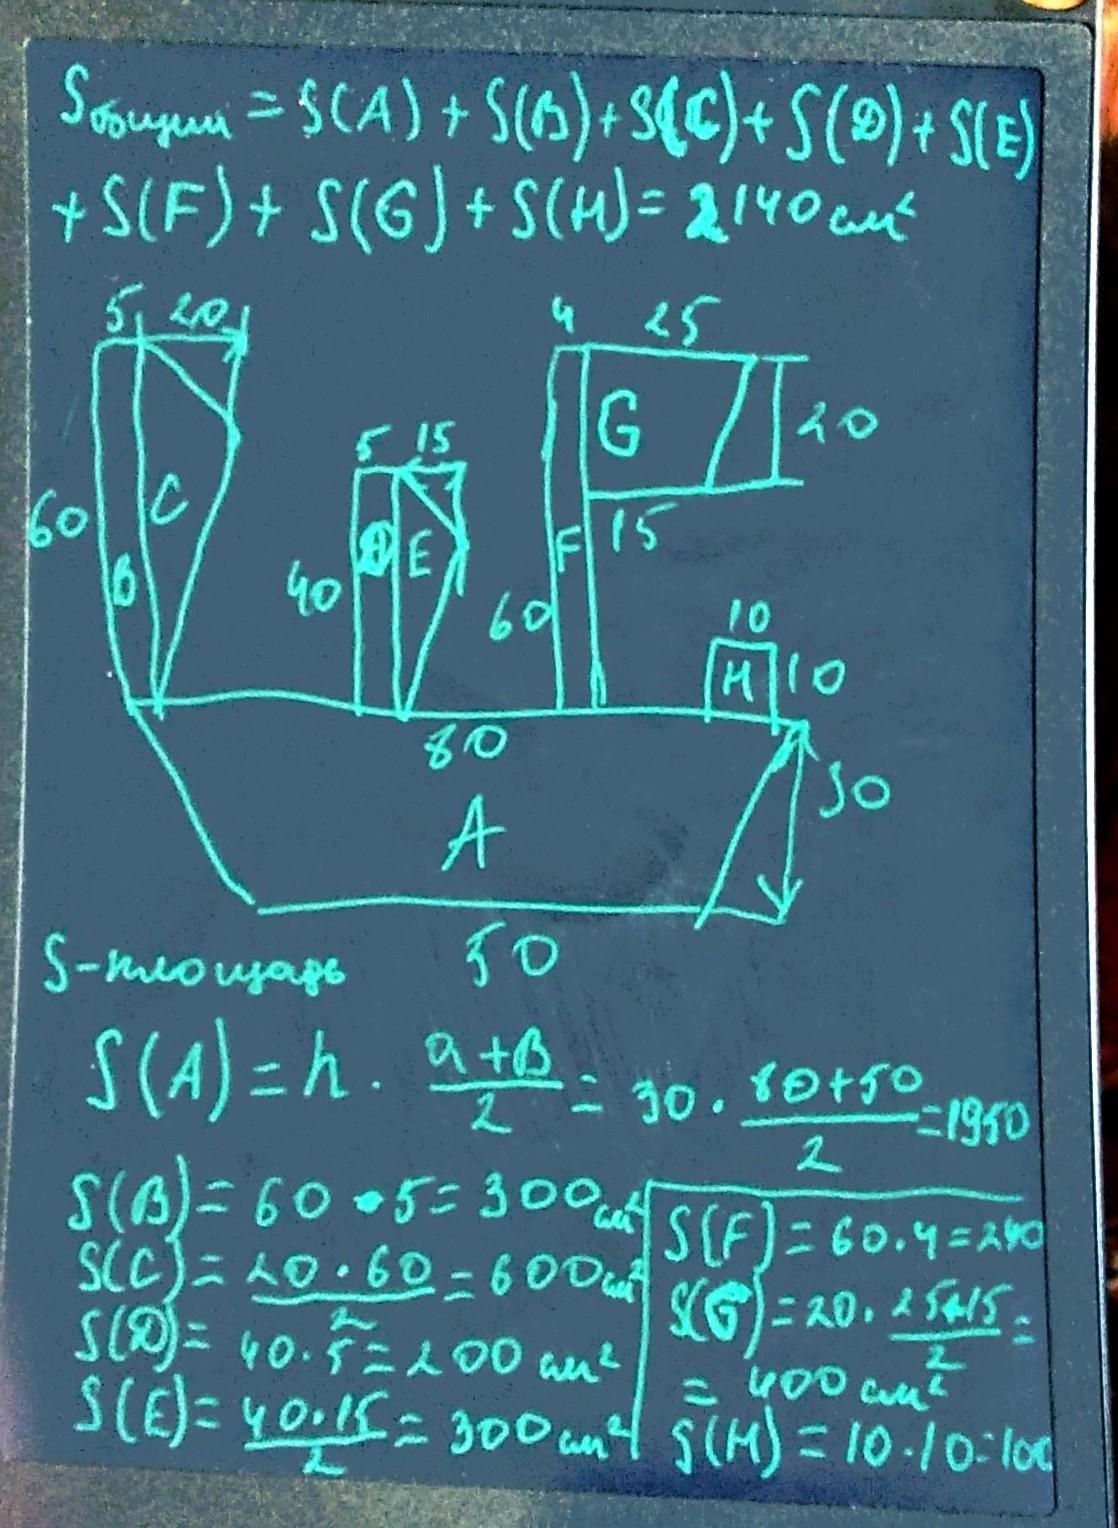 Sобщии = S(A) + S(B) + S(C) + S(D) + S(E)
+ S(F) + S(G) + S(H) = 2140 см²
5 20
4 25
G
20
5 15
60
C
D
E
F
15
B
40
60
10
H
10
80
30
A
50
S-площадь
S(A) = h · \frac{a+B}{2} = 30 · \frac{80+50}{2} = 1950
S(B) = 60 · 5 = 300 см²
S(C) = \frac{20 · 60}{2} = 600 см²
S(D) = 40 · 5 = 200 см²
S(E) = \frac{40 · 15}{2} = 300 см²
S(F) = 60 · 4 = 240
S(G) = 20 · \frac{25+15}{2} =
= 400 см²
S(H) = 10 · 10 = 100